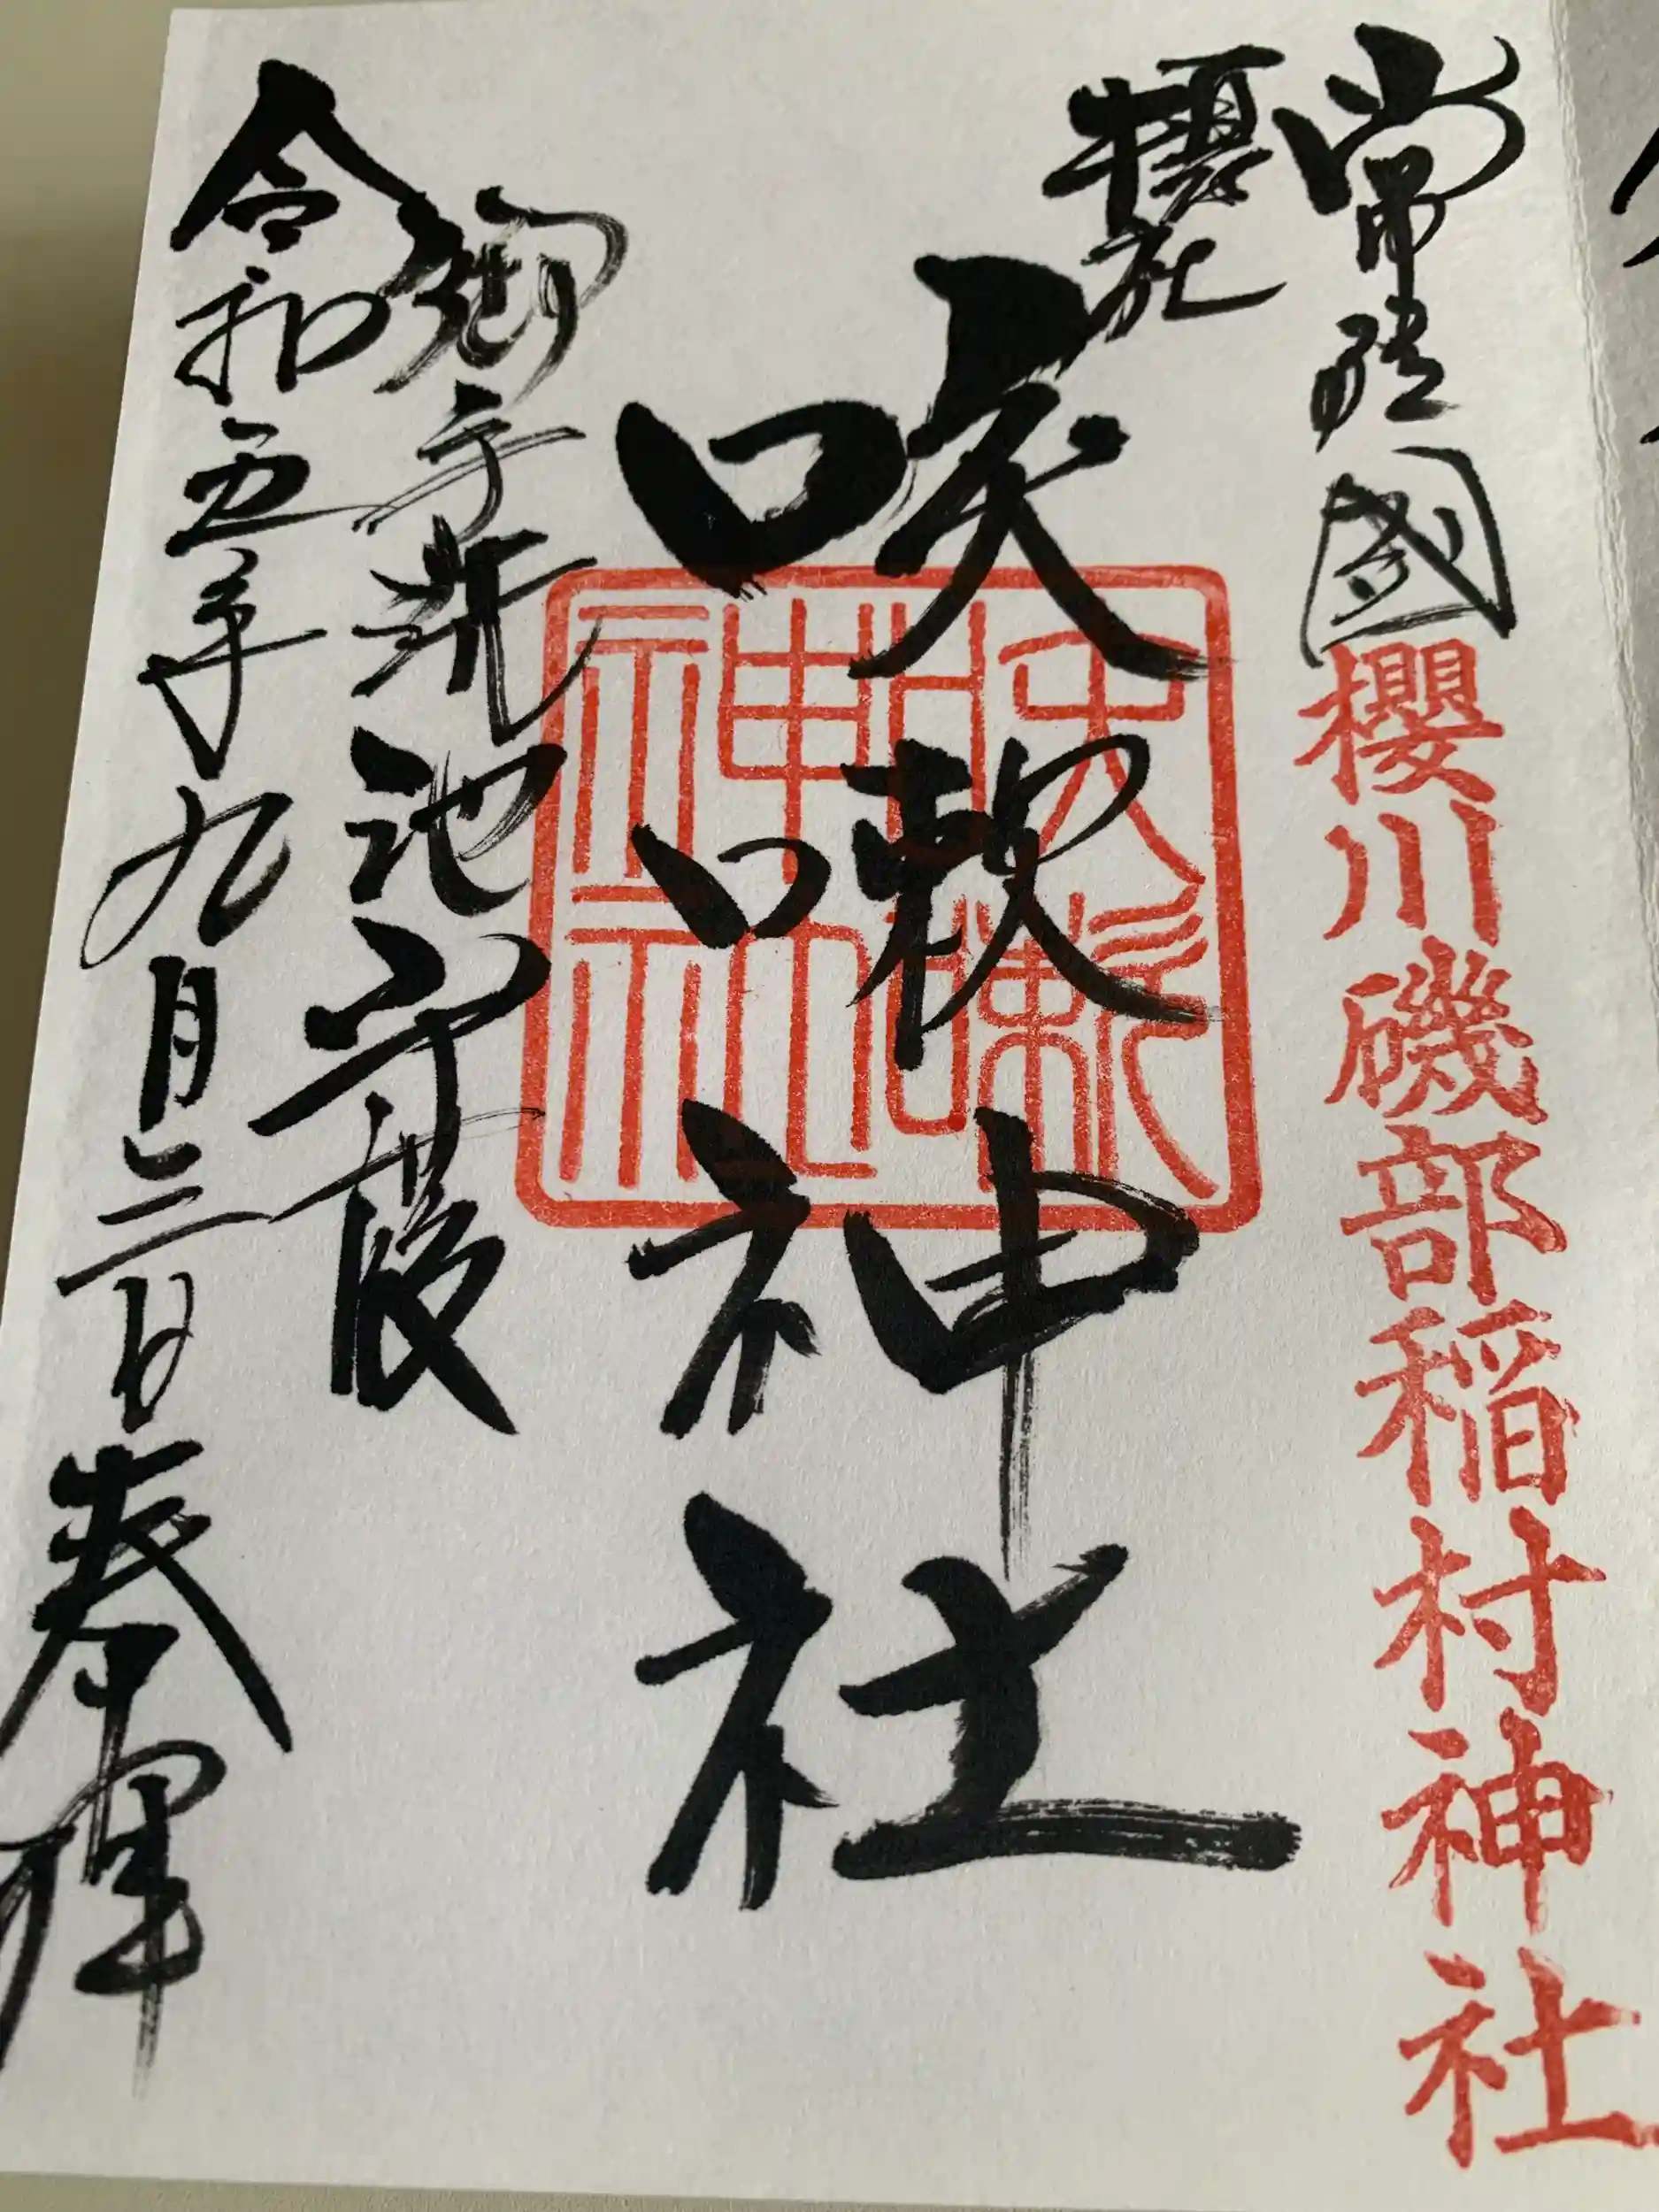 常陸國櫻川磯部稲村神社
攝社
咲嗽神社
咲嗽神社
御手洗池守護
令和五年九月三日奉拝